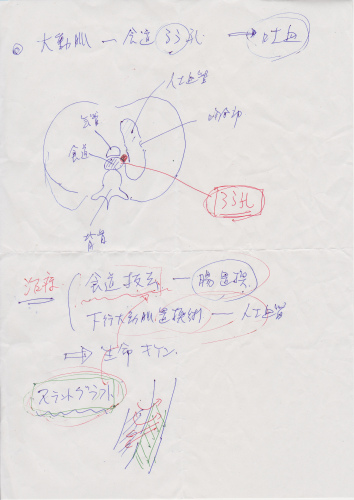 大動脈 — 食道 ろう孔 ⇒ 吐血
人工血管
吻合部
気管
食道
ろう孔
背骨
治療 食道抜去 — 腸置換
下行大動脈置換術 — 人工血管
⇒ 生命キケン.
ステントグラフト